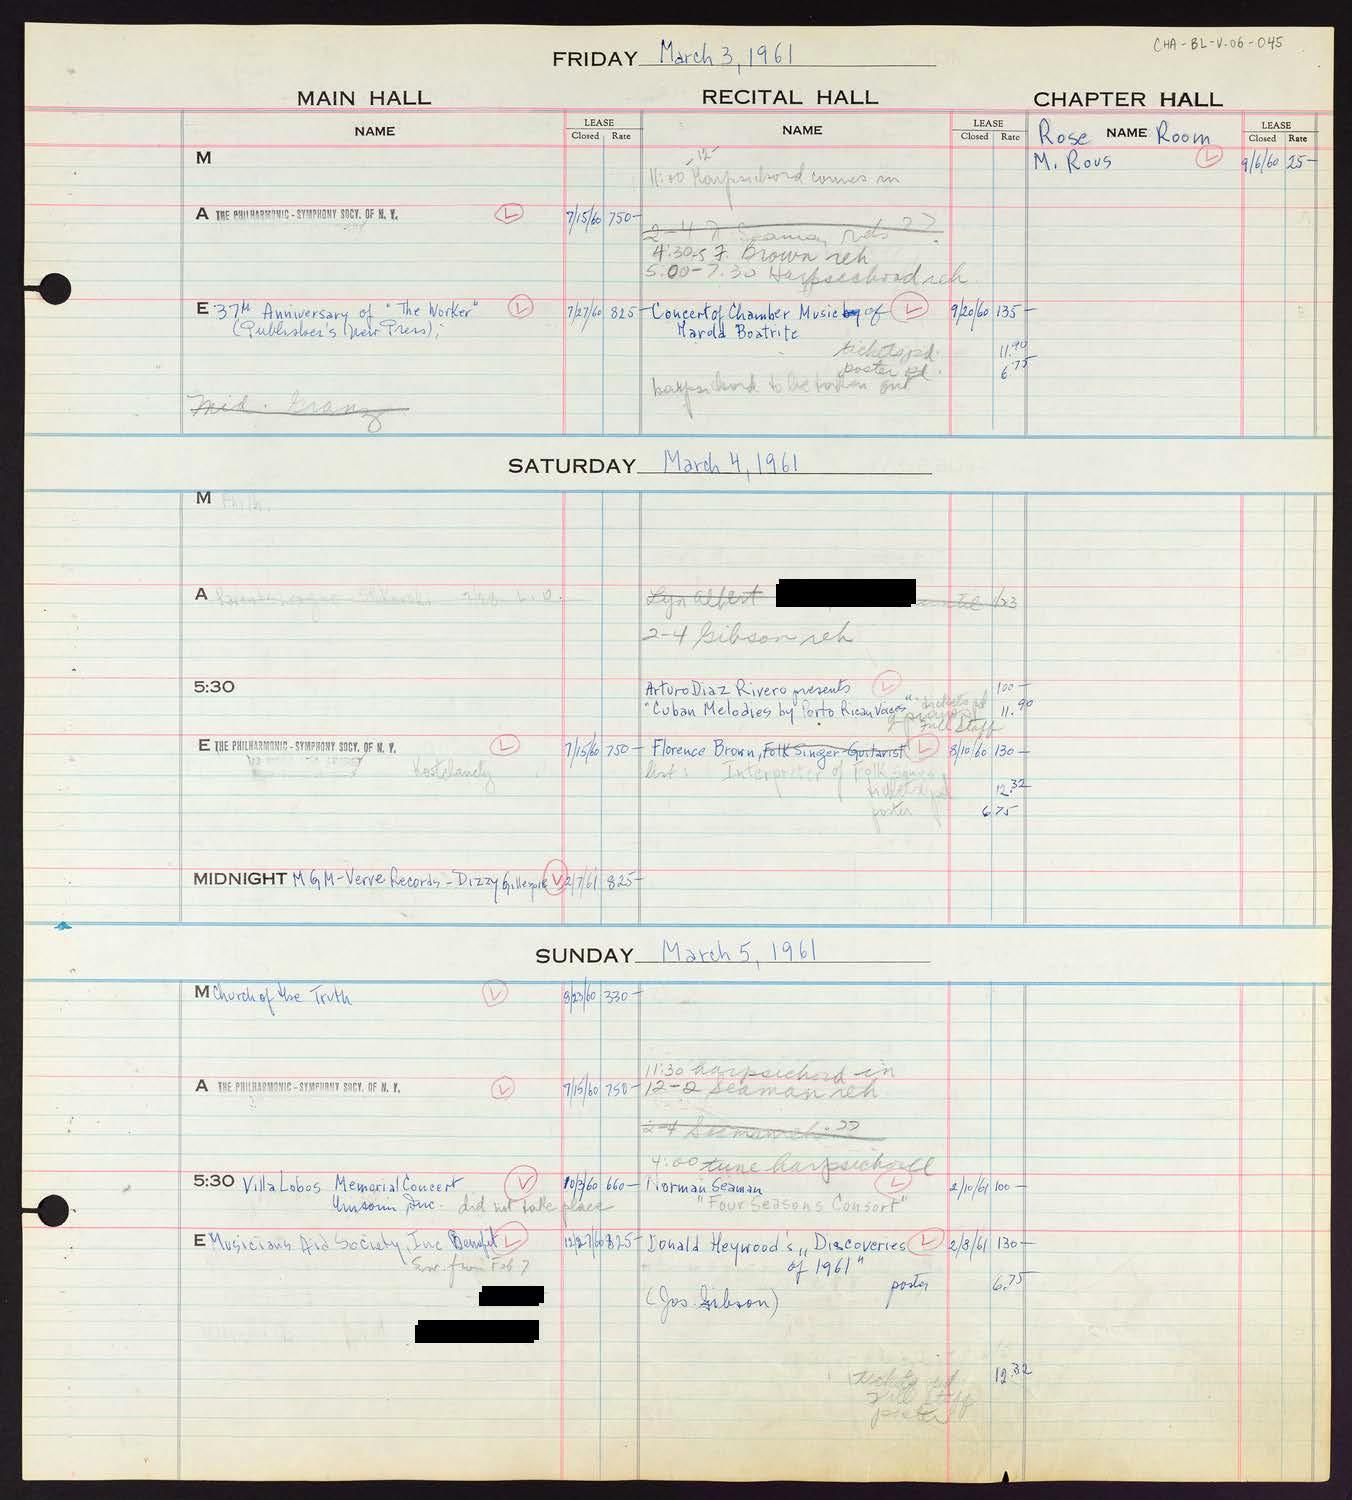 CHA-BL-V-06-045
FRIDAY March 3, 1961
MAIN HALL RECITAL HALL CHAPTER HALL
NAME LEASE Closed Rate NAME LEASE Closed Rate Rose NAME Room LEASE Closed Rate
M M. Rovs L 9/6/60 25-
-12-
11:00 Harpsichord comes in
A THE PHILHARMONIC-SYMPHONY SOCY. OF N. Y. L 7/15/60 750-
2-4 Seaman reh ??
4:30-5 F. Brown reh
5:00-7:30 Harpsechord reh
E 37th Anniversary of "The Worker" L 7/27/60 825- Concert of Chamber Music by of L 9/20/60 135-
(Publisher's New Press); Harold Boatrite
tickets pd. 11.90
poster pd. 6.75
harpsichord to be taken out
Mid. Granz
SATURDAY March 4, 1961
M Philh.
A Lyn Albert 1/23
2-4 Gibson reh
5:30 Arturo Diaz Rivero presents L 100-
"Cuban Melodies by Porto Rican Voices" tickets pd 11.90
Full Staff
E THE PHILHARMONIC-SYMPHONY SOCY. OF N. Y. L 7/15/60 750- Florence Brown, Folk Singer-Guitarist L 8/10/60 130-
Kostelanetz list: Interpreter of Folk songs
tickets pd 12.32
poster 6.75
MIDNIGHT MGM-Verve Records - Dizzy Gillespie L 2/7/61 825-
SUNDAY March 5, 1961
M Church of the Truth L 8/23/60 330-
11:30 harpsichord in
A THE PHILHARMONIC-SYMPHONY SOCY. OF N. Y. L 7/15/60 750- 12-2 Seaman reh
2-4 Seaman reh ??
4:00 tune harpsichord
5:30 Villa Lobos Memorial Concert L 10/3/60 660- Norman Seaman L 2/10/61 100-
Unison, Inc. did not take place "Four Seasons Consort"
E Musicians Aid Society, Inc Benefit L 12/27/60 825- Donald Heywood's "Discoveries L 2/8/61 130-
from Feb 7 of 1961"
poster 6.75
(Jos. Gibson)
tickets pd. 12.32
Full Staff
poster